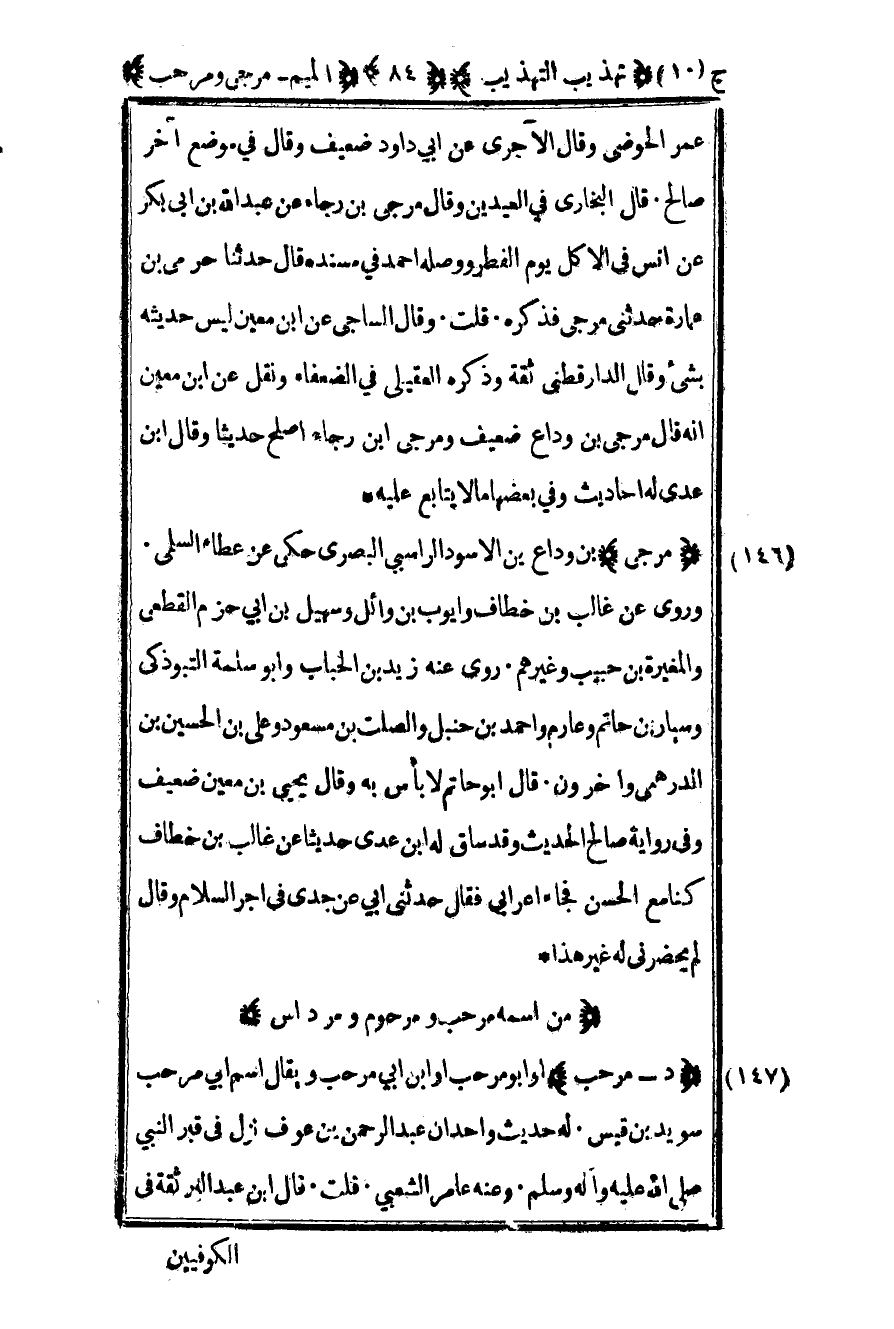 ج (١٠) ﴿ تهذيب التهذيب ﴾ ﴿ ٨٤ ﴾ ﴿ الميم - مرجى ومرحب ﴾
عمر الحوضى وقال الآجرى عن ابي داود ضعيف وقال في موضع آخر
صالح ٠ قال البخارى في العيدين وقال مرجى بن رجاء عن عبدالله بن ابى بكر
عن انس فى الاكل يوم الفطر ووصله احمد في مسنده قال حدثنا حرمى بن
عمارة حدثنى مرجى فذكره ٠ قلت ٠ وقال الساجى عن ابن معين ليس حديثه
بشئ وقال الدارقطنى ثقة وذكره العقيلى في الضعفاء ونقل عن ابن معين
انه قال مرجى بن وداع ضعيف ومرجى ابن رجاء اصلح حديثا وقال ابن
عدى له احاديث وفي بعضها مالا يتابع عليه *
(١٤٦) ﴿ مرجى ﴾ بن وداع بن الاسود الراسبي البصرى حكى عن عطاء السلمى ٠
وروى عن غالب بن خطاف وايوب بن وائل وسهيل بن ابي حزم القطعى
والمغيرة بن حبيب وغيرهم ٠ روى عنه زيد بن الحباب وابو سلمة التبوذكى
وسيار بن حاتم وعارم واحمد بن حنبل والصلت بن مسعود وعلى بن الحسين بن
الدرهمى واخرون ٠ قال ابو حاتم لا بأس به وقال يحيى بن معين ضعيف
وفى رواية صالح الحديث وقد ساق له ابن عدى حديثا عن غالب بن خطاف
كنا مع الحسن فجاء اعرابي فقال حدثنى ابي عن جدى فى اجر السلام وقال
لم يحضرنى له غير هذا *
﴿ من اسمه مرحب و مرحوم و مرداس ﴾
(١٤٧) ﴿ د - مرحب ﴾ او ابو مرحب او ابن ابي مرحب ويقال اسم ابي مرحب
سويد بن قيس ٠ له حديث واحد ان عبدالرحمن بن عوف نزل فى قبر النبي
صلى الله عليه وآله وسلم ٠ وعنه عامر الشعبي ٠ قلت ٠ قال ابن عبدالبر ثقة فى
الكوفيين